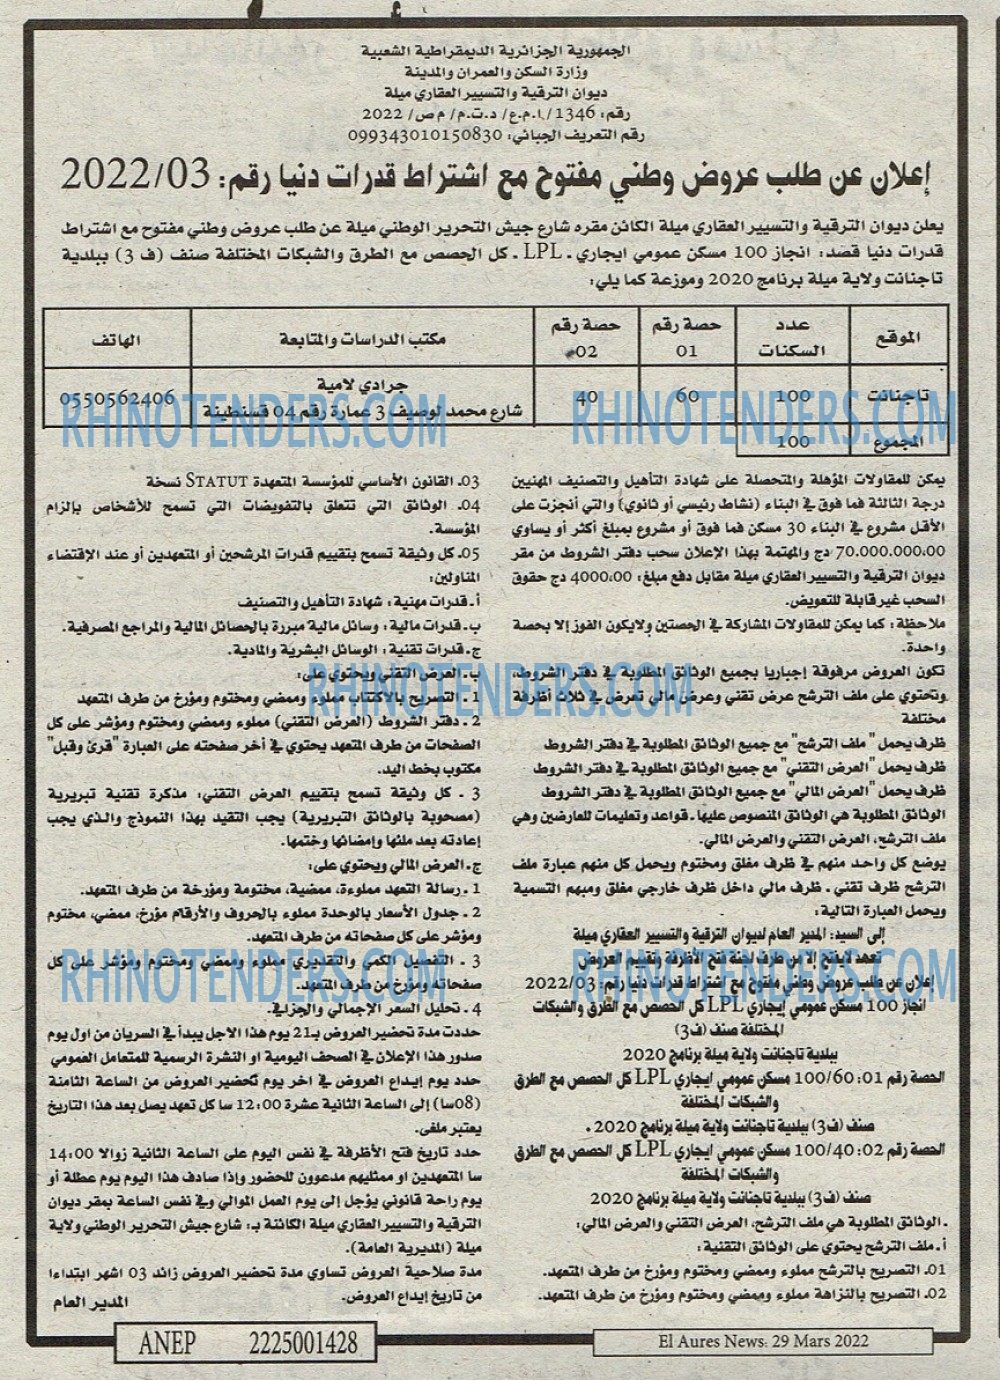 الجمهورية الجزائرية الديمقراطية الشعبية
وزارة السكن والعمران والمدينة
ديوان الترقية والتسيير العقاري ميلة
رقم: 1346/ا.م.ع/ د.ت.م/ م ص/ 2022
رقم التعريف الجبائي: 099343010150830
إعلان عن طلب عروض وطني مفتوح مع اشتراط قدرات دنيا رقم: 2022/03
يعلن ديوان الترقية والتسيير العقاري ميلة الكائن مقره شارع جيش التحرير الوطني ميلة عن طلب عروض وطني مفتوح مع اشتراط
قدرات دنيا قصد: انجاز 100 مسكن عمومي ايجاري ـ LPL ـ كل الحصص مع الطرق والشبكات المختلفة صنف (ف 3) ببلدية
تاجنانت ولاية ميلة برنامج 2020 وموزعة كما يلي:
الموقع
عدد السكنات
حصة رقم 01
حصة رقم 02
مكتب الدراسات والمتابعة
الهاتف
تاجنانت
100
60
40
جرادي لامية
شارع محمد لوصيف 3 عمارة رقم 04 قسنطينة
0550562406
المجموع
100
RHINOTENDERS.COM
RHINOTENDERS.COM
يمكن للمقاولات المؤهلة والمتحصلة على شهادة التأهيل والتصنيف المهنيين
درجة الثالثة فما فوق في البناء (نشاط رئيسي أو ثانوي) والتي أنجزت على
الأقل مشروع في البناء 30 مسكن فما فوق أو مشروع بمبلغ أكثر أو يساوي
70.000.000,00 دج والمهتمة بهذا الإعلان سحب دفتر الشروط من مقر
ديوان الترقية والتسيير العقاري ميلة مقابل دفع مبلغ: 4000,00 دج حقوق
السحب غير قابلة للتعويض.
ملاحظة: كما يمكن للمقاولات المشاركة في الحصتين ولايكون الفوز إلا بحصة
واحدة.
تكون العروض مرفوقة إجباريا بجميع الوثائق المطلوبة في دفتر الشروط،
وتحتوي على ملف الترشح عرض تقني وعرض مالي تعرض في ثلاث أظرفة
مختلفة
ظرف يحمل "ملف الترشح" مع جميع الوثائق المطلوبة في دفتر الشروط
ظرف يحمل "العرض التقني" مع جميع الوثائق المطلوبة في دفتر الشروط
ظرف يحمل "العرض المالي" مع جميع الوثائق المطلوبة في دفتر الشروط
الوثائق المطلوبة هي الوثائق المنصوص عليها ـ قواعد وتعليمات للعارضين وهي
ملف الترشح، العرض التقني والعرض المالي.
يوضع كل واحد منهم في ظرف مغلق ومختوم ويحمل كل منهم عبارة ملف
الترشح ظرف تقني ـ ظرف مالي داخل ظرف خارجي مغلق ومبهم التسمية
ويحمل العبارة التالية:
إلى السيد: المدير العام لديوان الترقية والتسيير العقاري ميلة
تعهد لا يفتح إلا من طرف لجنة فتح الأظرفة وتقييم العروض
إعلان عن طلب عروض وطني مفتوح مع اشتراط قدرات دنيا رقم: 2022/03
انجاز 100 مسكن عمومي إيجاري LPL كل الحصص مع الطرق والشبكات
المختلفة صنف (ف3)
ببلدية تاجنانت ولاية ميلة برنامج 2020
الحصة رقم 01: 100/60 مسكن عمومي ايجاري LPL كل الحصص مع الطرق
والشبكات المختلفة
صنف (ف3) ببلدية تاجنانت ولاية ميلة برنامج 2020 .
الحصة رقم 02: 100/40 مسكن عمومي ايجاري LPL كل الحصص مع الطرق
والشبكات المختلفة
صنف (ف3) ببلدية تاجنانت ولاية ميلة برنامج 2020
ـ الوثائق المطلوبة هي ملف الترشح، العرض التقني والعرض المالي:
أ ـ ملف الترشح يحتوي على الوثائق التقنية:
01ـ التصريح بالترشح مملوء وممضي ومختوم ومؤرخ من طرف المتعهد.
02ـ التصريح بالنزاهة مملوء وممضي ومختوم ومؤرخ من طرف المتعهد.
03ـ القانون الأساسي للمؤسسة المتعهدة STATUT نسخة
04ـ الوثائق التي تتعلق بالتفويضات التي تسمح للأشخاص بإلزام
المؤسسة.
05ـ كل وثيقة تسمح بتقييم قدرات المرشحين أو المتعهدين أو عند الإقتضاء
المناولين:
أ ـ قدرات مهنية: شهادة التأهيل والتصنيف
ب ـ قدرات مالية: وسائل مالية مبررة بالحصائل المالية والمراجع المصرفية.
ج ـ قدرات تقنية: الوسائل البشرية والمادية.
ب ـ العرض التقني ويحتوي على:
1 ـ التصريح بالاكتتاب مملوء وممضي ومختوم ومؤرخ من طرف المتعهد
2 ـ دفتر الشروط (العرض التقني) مملوء وممضي ومختوم ومؤشر على كل
الصفحات من طرف المتعهد يحتوي في أخر صفحته على العبارة "قرئ وقبل"
مكتوب بخط اليد.
3 ـ كل وثيقة تسمح بتقييم العرض التقني: مذكرة تقنية تبريرية
(مصحوبة بالوثائق التبريرية) يجب التقيد بهذا النموذج والذي يجب
إعادته بعد ملئها وإمضائها وختمها.
ج ـ العرض المالي ويحتوي على:
1 ـ رسالة التعهد مملوءة، ممضية، مختومة ومؤرخة من طرف المتعهد.
2 ـ جدول الأسعار بالوحدة مملوء بالحروف والأرقام مؤرخ، ممضي، مختوم
ومؤشر على كل صفحاته من طرف المتعهد.
3 ـ التفصيل الكمي والتقديري مملوء وممضي ومختوم ومؤشر على كل
صفحاته ومؤرخ من طرف المتعهد.
4 ـ تحليل السعر الإجمالي والجزافي.
حددت مدة تحضير العروض بـ21 يوم هذا الاجل يبدأ في السريان من اول يوم
صدور هذا الإعلان في الصحف اليومية او النشرة الرسمية للمتعامل العمومي
حدد يوم إيداع العروض في اخر يوم لتحضير العروض من الساعة الثامنة
(08سا) إلى الساعة الثانية عشرة 12:00 سا كل تعهد يصل بعد هذا التاريخ
يعتبر ملغى.
حدد تاريخ فتح الأظرفة في نفس اليوم على الساعة الثانية زوالا 14:00
سا المتعهدين او ممثليهم مدعوون للحضور وإذا صادف هذا اليوم يوم عطلة أو
يوم راحة قانوني يؤجل إلى يوم العمل الموالي وفي نفس الساعة بمقر ديوان
الترقية والتسيير العقاري ميلة الكائنة بـ: شارع جيش التحرير الوطني ولاية
ميلة (المديرية العامة).
مدة صلاحية العروض تساوي مدة تحضير العروض زائد 03 اشهر ابتداءا
من تاريخ إيداع العروض.
المدير العام
RHINOTENDERS.COM
RHINOTENDERS.COM
RHINOTENDERS.COM
ANEP 2225001428
El Aures News: 29 Mars 2022